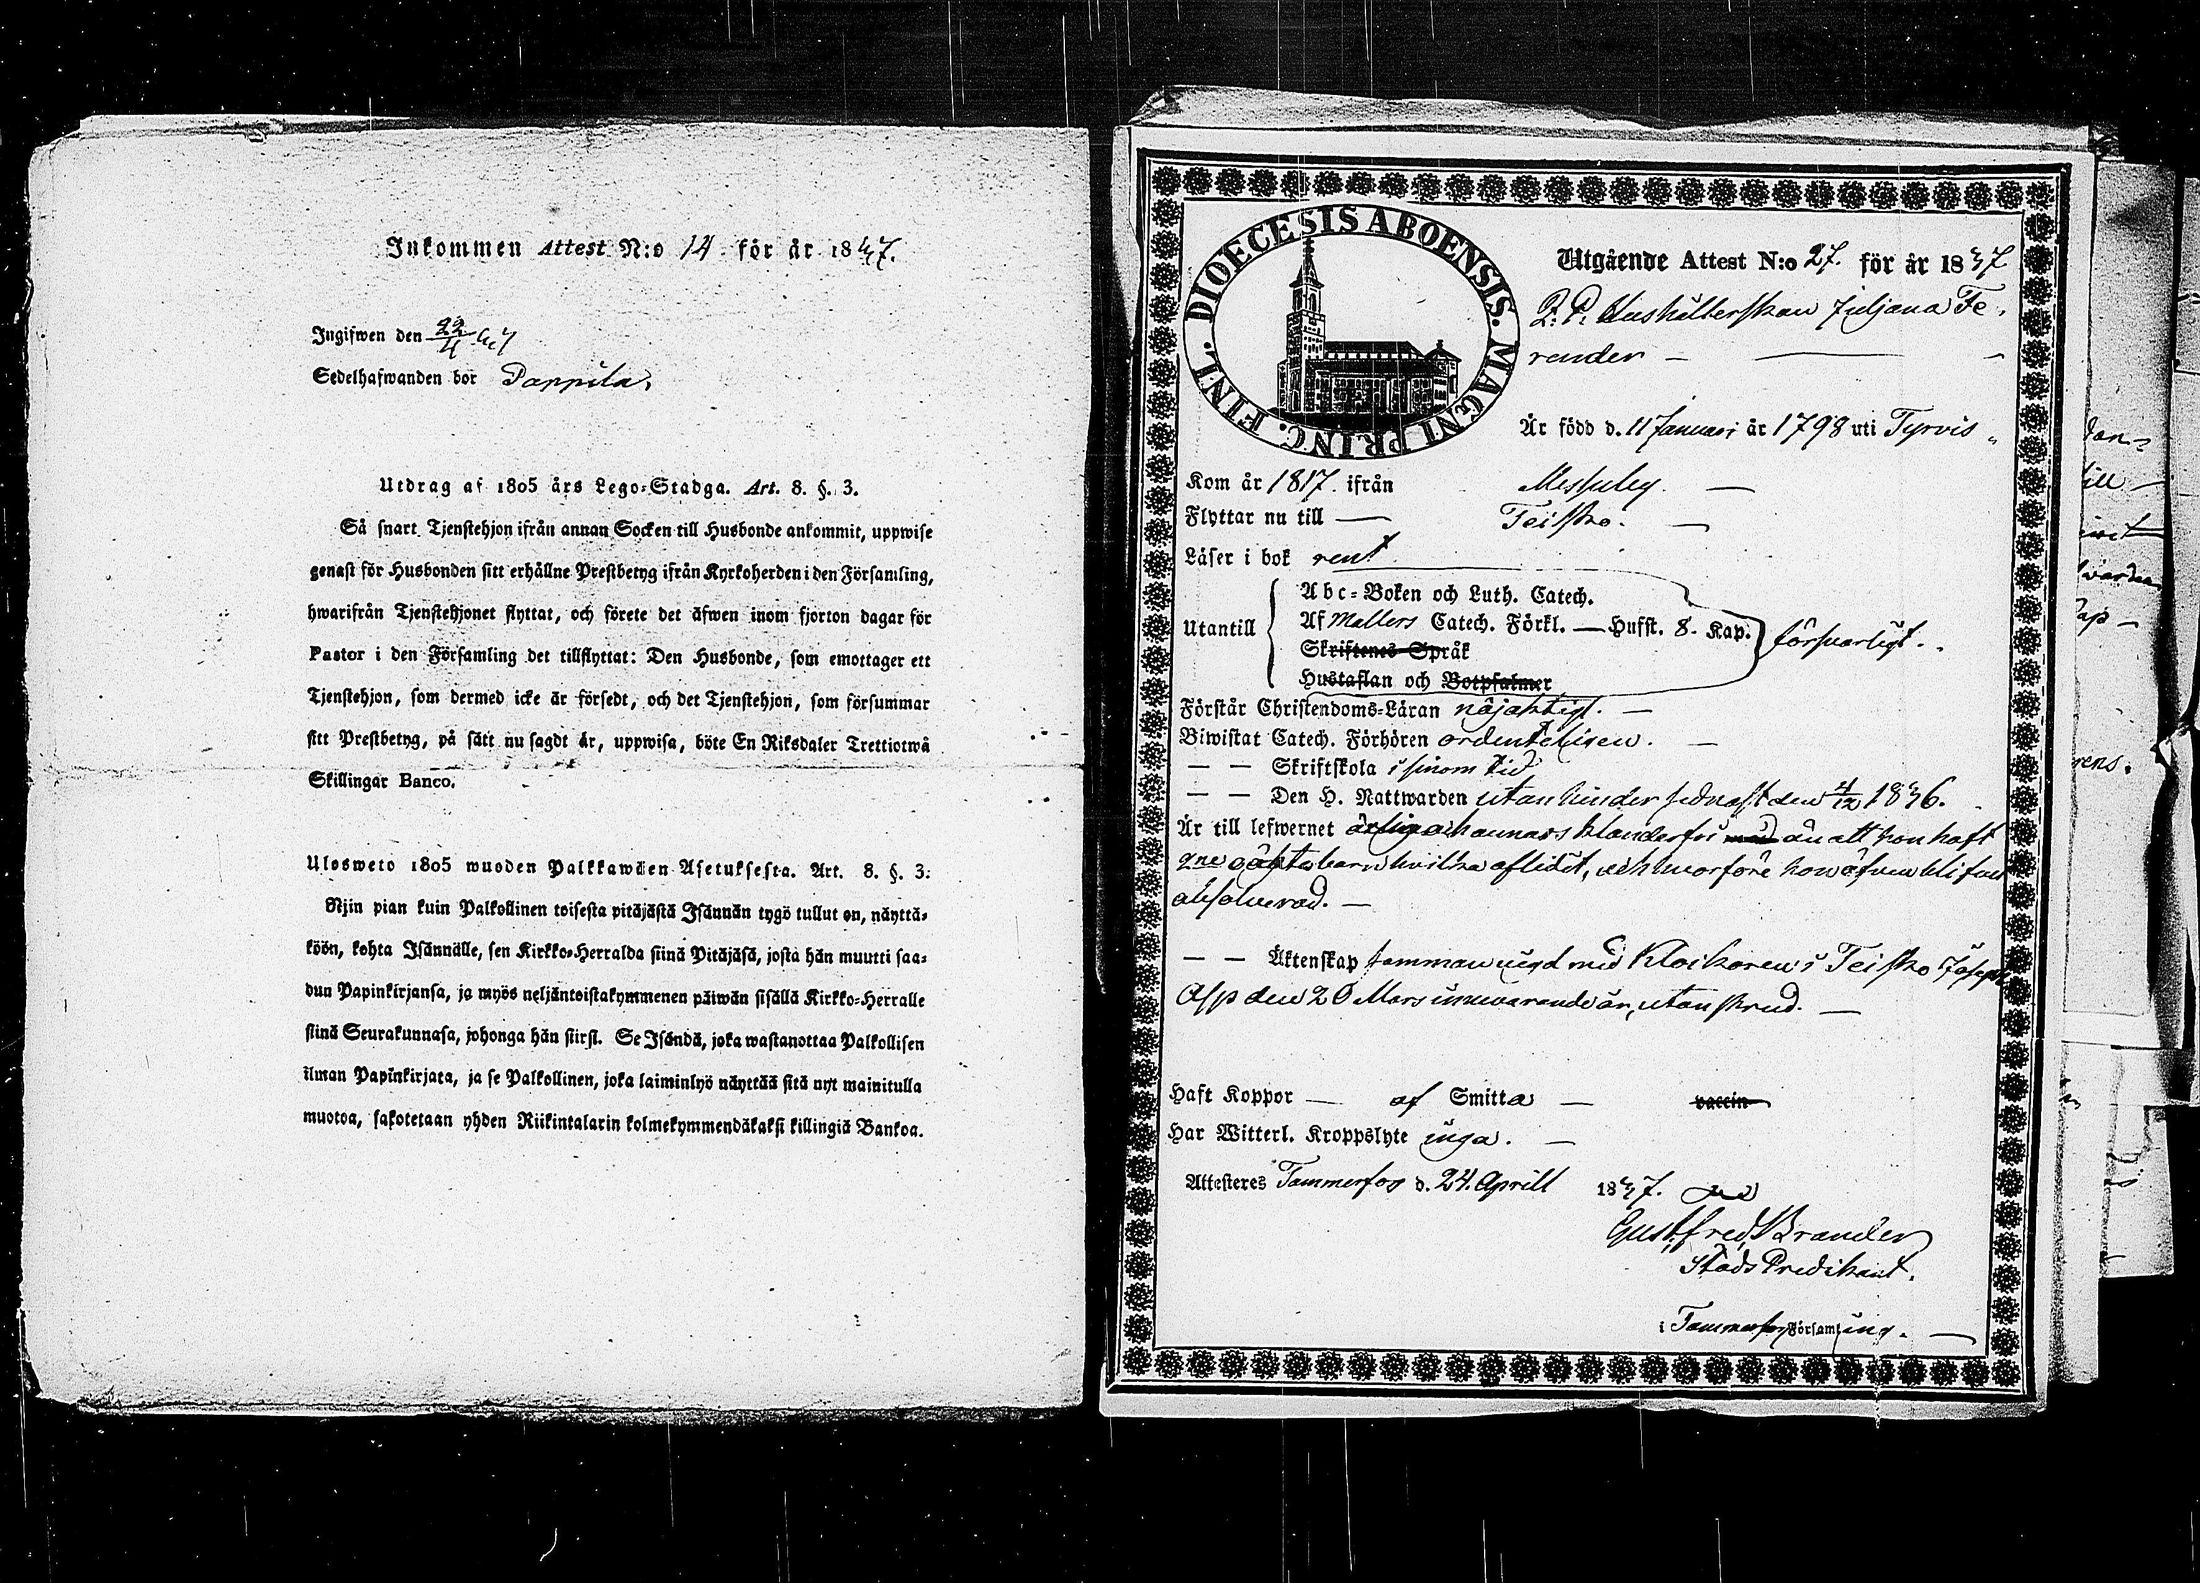 Inkommen Attest N:o 14 för år 1837.
Ingifwen den 22/4 37
Sedelhafwanden bor Pappila,
Utdrag af 1805 års Lego-Stadga. Art. 8. §. 3.
Så snart Tjenstehjon ifrån annan Socken till Husbonde ankommit, uppwise
genast för Husbonden sitt erhållne Prestbetyg ifrån Kyrkoherden i den Församling,
hwarifrån Tjenstehjonet flyttat, och förete det äfwen inom fjorton dagar för
Pastor i den Församling det tillflyttat: Den Husbonde, som emottager ett
Tjenstehjon, som dermed icke är försedt, och det Tjenstehjon, som försummar
sitt Prestbetyg, på sätt nu sagdt är, uppwisa, böte En Riksdaler Trettiotwå
Skillingar Banco.
Ulosweto 1805 wuoden Palkkawäen Asetuksesta. Art. 8. §. 3:
Njin pian kuin Palkollinen toisesta pitäjästä Isännän tygö tullut on, näyttä-
köön, kohta Isännälle, sen Kirkko-Herralda siinä Pitäjäsä, josta hän muutti saa-
dun Papinkirjansa, ja myös neljäntoistakymmenen päiwän sisällä Kirkko-Herralle
siinä Seurakunnasa, johonga hän siirsi. Se Isändä, joka wastanottaa Palkollisen
ilman Papinkirjata, ja se Palkollinen, joka laiminlyö näyttää sitä nyt mainitulla
muotoa, sakotetaan yhden Riikintalarin kolmekymmendäkaksi killingiä Bankoa.
DIOECESIS ABOENSIS. MAGNI PRINC. FINL.
Utgående Attest N:o 27. för år 1837
P. P. Hushållerskan Juljana Fe-
render —
Är född d. 11 Januari år 1798 uti Tyrvis
Kom år 1817. ifrån Messuby. —
Flyttar nu till — Teisko. —
Läser i bok rent
Abc-Boken och Luth. Catech.
Utantill Af Mallers Catech. Förkl. — Husst. 8. Kap. försvarligt.
Skriftenes Språk
Hustaflan och Botpsalmer
Förstår Christendoms-Läran nöjaktigt. —
Biwistat Catech. Förhören ordenteligen. —
— — Skriftskola i sinom tid
— — Den H. Nattwarden utan hinder sednast den 4/12 1836.
Är till lefwernet ärlig och annars klanderfri än att hon haft
oäkta barn hvilka aflidit, och hvarföre hon äfven blifvit
absolverad. —
— — Äktenskap sammanvigd med Klockaren i Teisko Joseph
Asp den 20 Mars innevarande år, utan skrud. —
Haft Koppor — af Smitta — vaccin
Har Witterl. Kroppslyte inga. —
Attesteres Tammerfos d. 24. Aprill 1837.
Gust. Fred. Brander
Stads Predikant.
i Tammerfors Församling. —